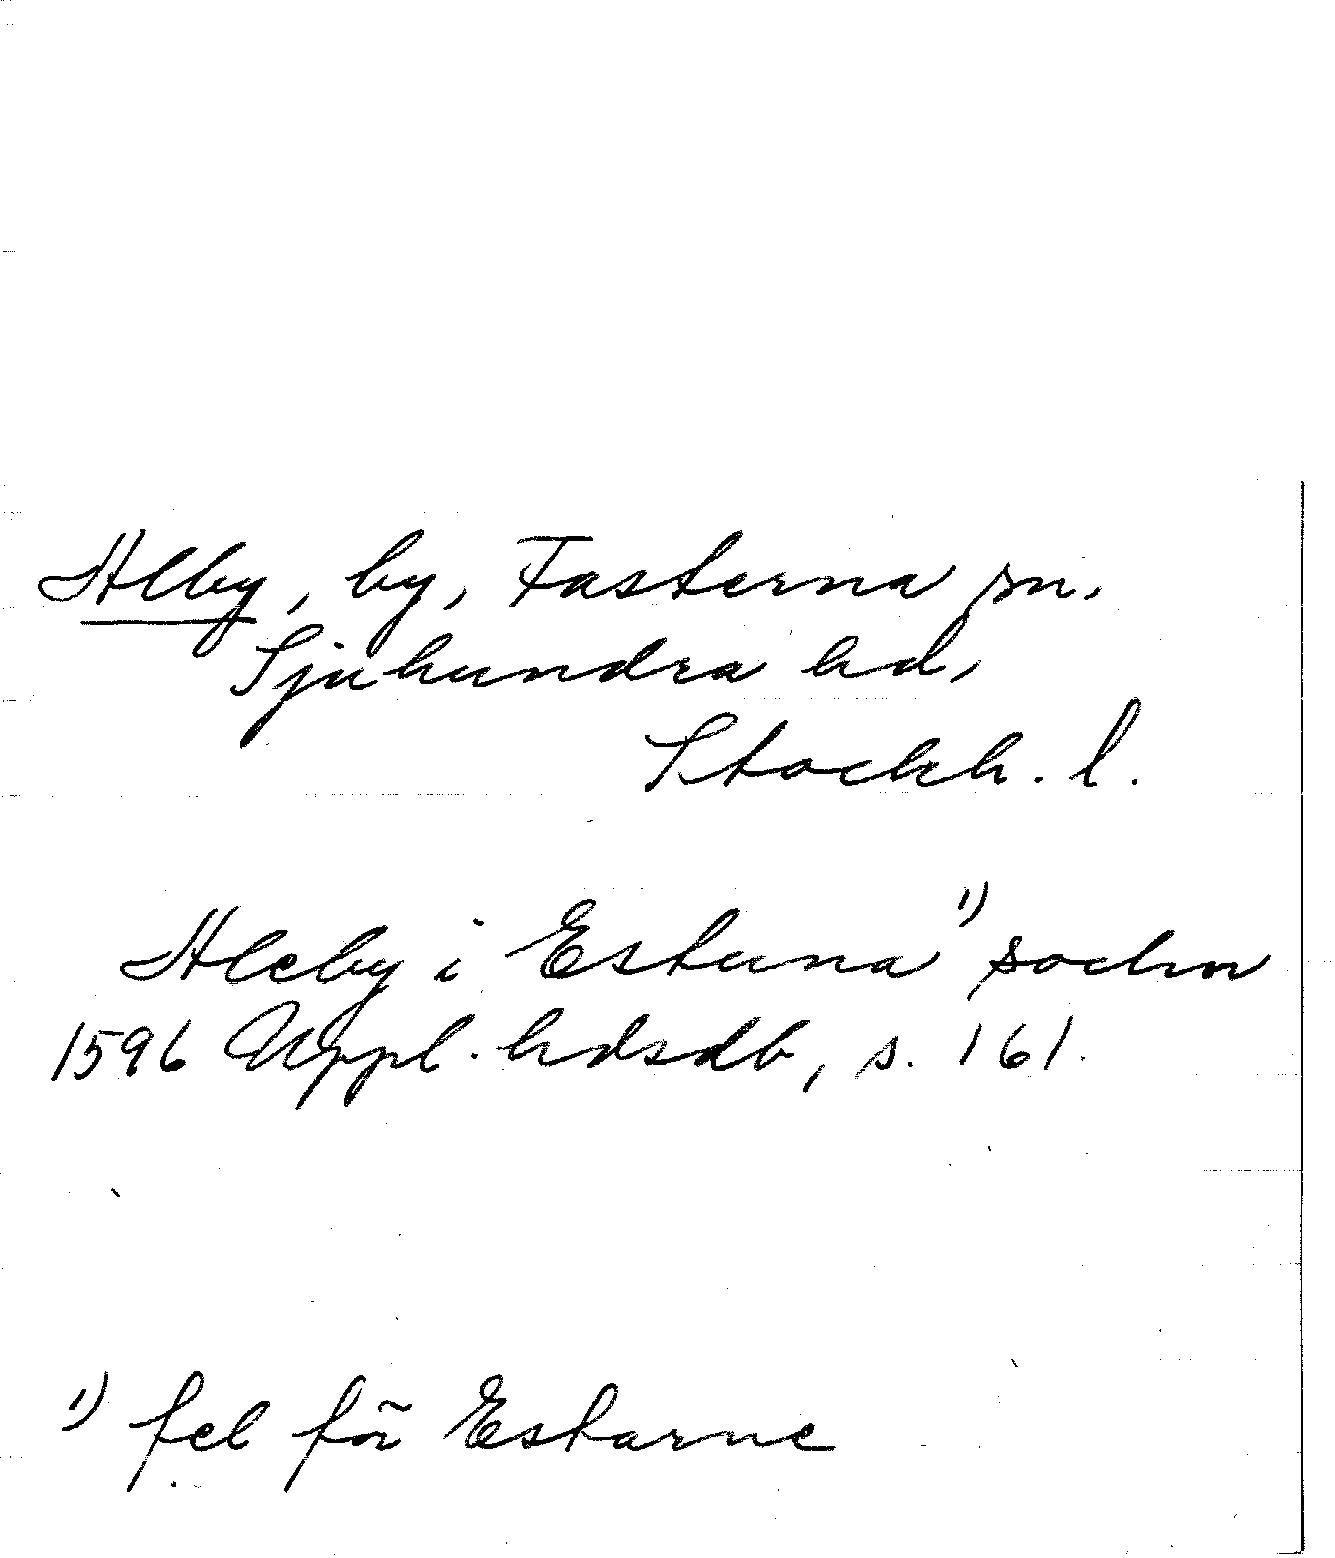 Alby, by, Fasterna sn.
Sjuhundra hd,
Stockh. l.
Aleby i Estuna 1) sochn
1596 Uppl. hdsdb, s. 161.
1) fel för Estarne